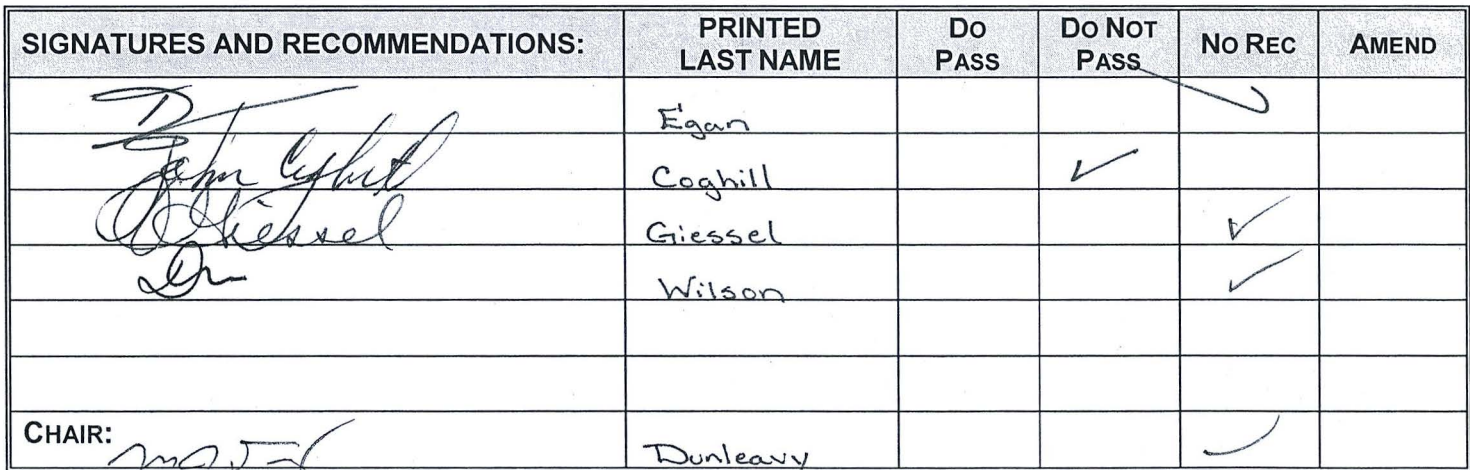 SIGNATURES AND RECOMMENDATIONS: PRINTED LAST NAME DO PASS DO NOT PASS NO REC AMEND
Egan
John Coghill Coghill ✓
Giessel Giessel ✓
Wilson ✓
CHAIR: Dunleavy ✓